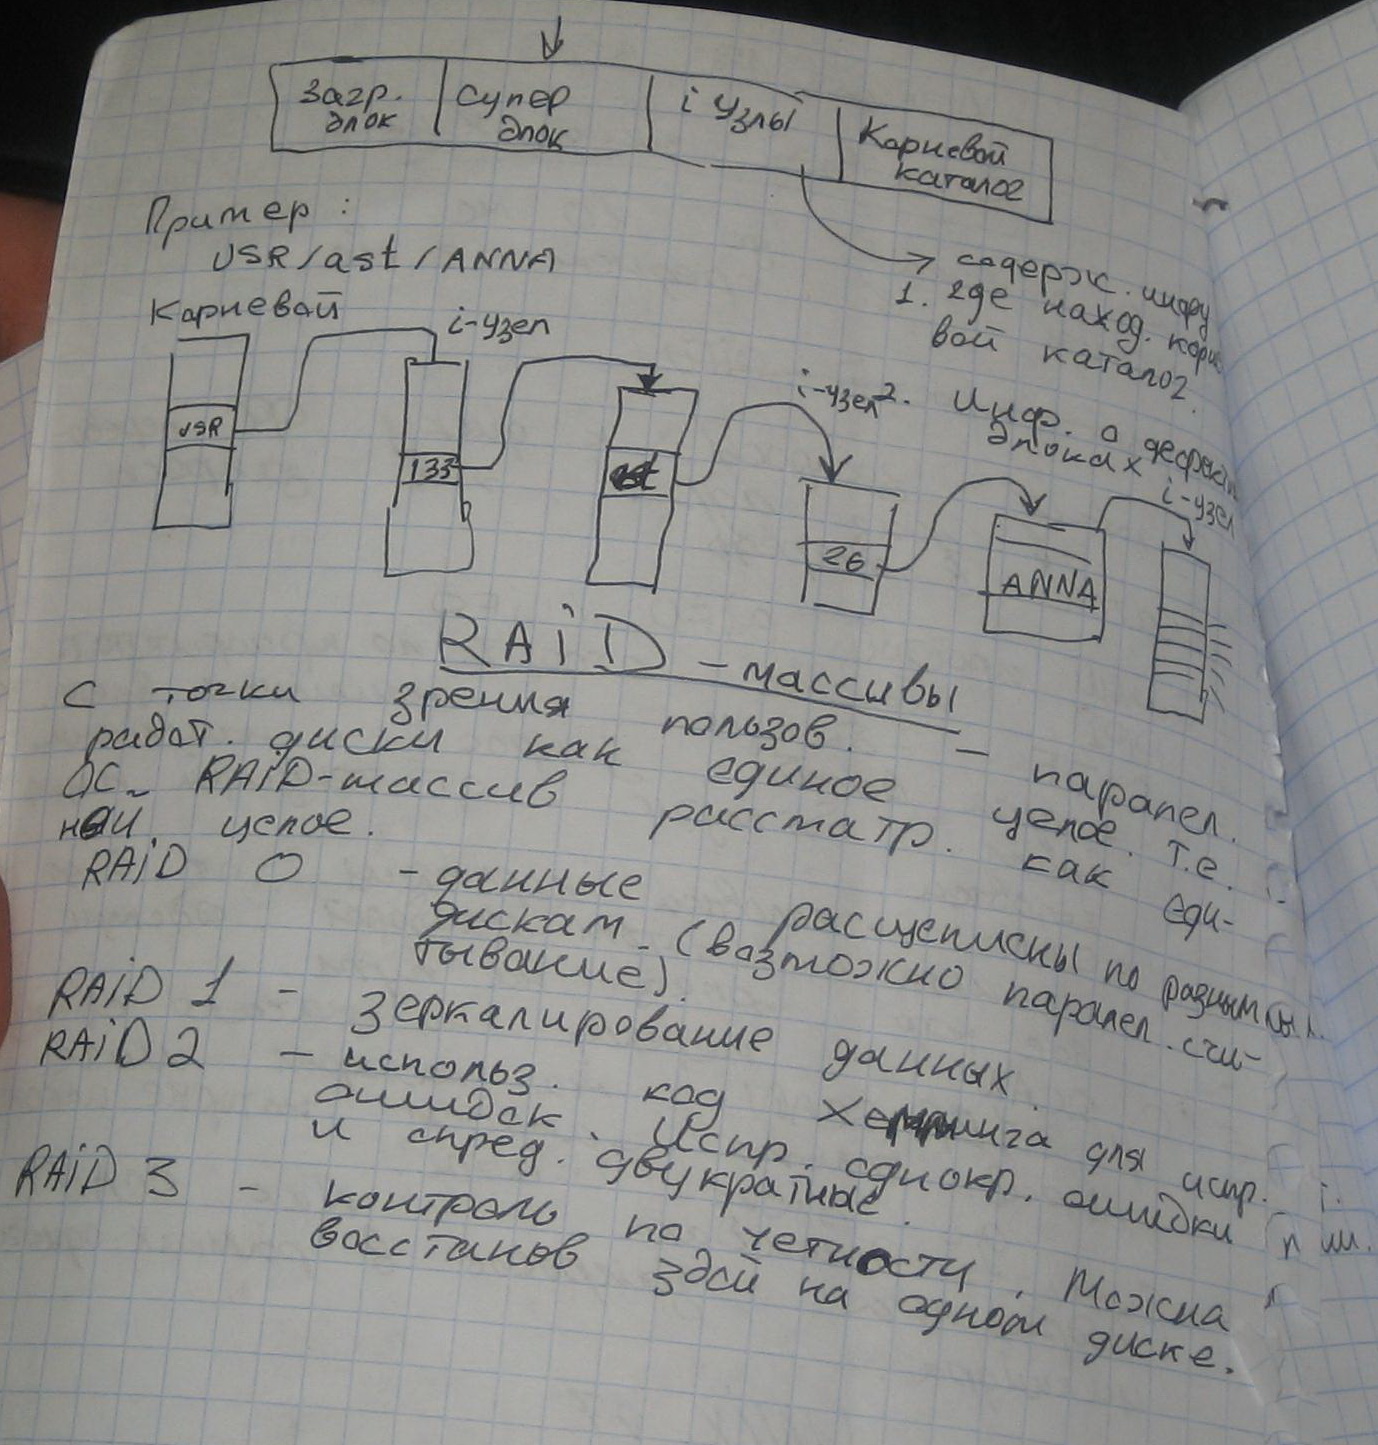 Загр. блок
Супер блок
i узлы
Корневой каталог
Пример:
USR/ast/ANNA
содерж. инфу
1. где наход. корне
вой каталог.
2. Инф. о дефектн
блоках
Корневой
i-узел
i-узел
i-узел
USR
133
ast
26
ANNA
RAiD - массивы
С точки зрения пользов. - парал.
работ. диски как единое целое. т.е.
ОС RAiD-массив рассматр. как еди-
ный целое.
RAiD 0 - данные расщеплены по разным
дискам. (возможно парал. счи-
тывание).
RAiD 1 - зеркалирование данных.
RAiD 2 - использ. код Хемминга для испр.
ошибок. Испр. однокр. ошибки
и опред. двукратные.
RAiD 3 - контроль по четности. Можна
восстанов сбой на одном диске.